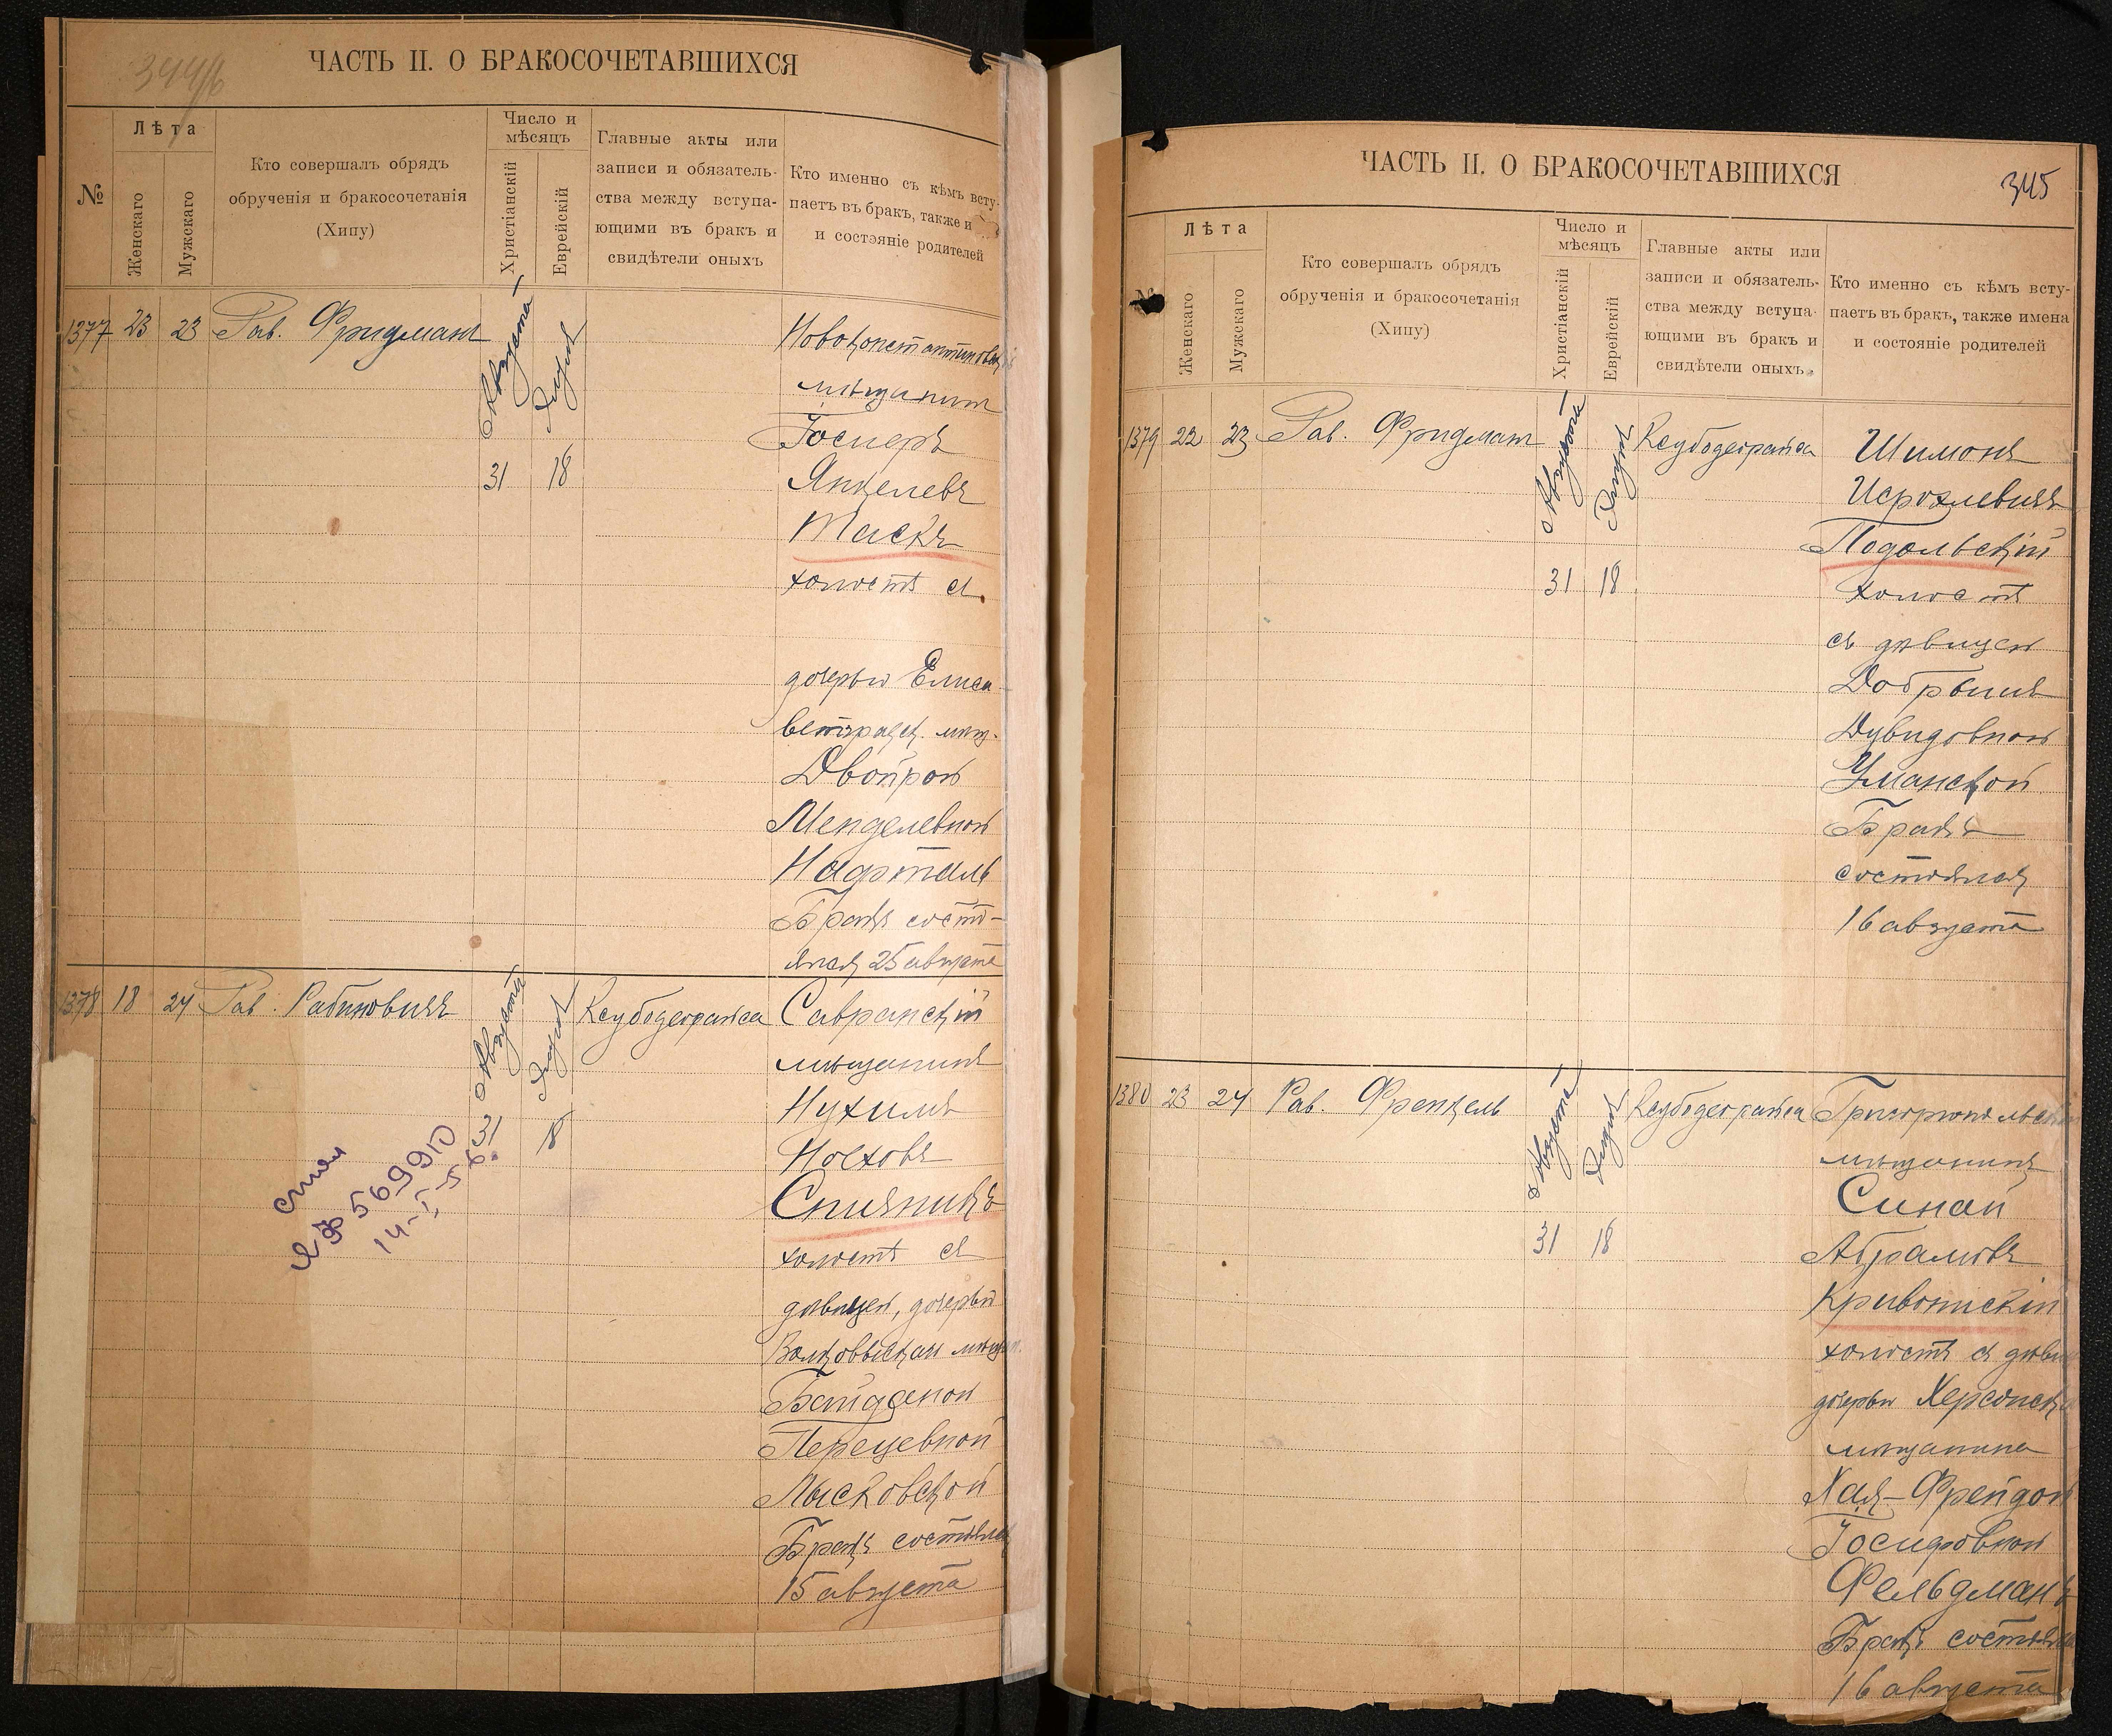 344/б
ЧАСТЬ II. О БРАКОСОЧЕТАВШИХСЯ
№
Лѣта
Женскаго
Мужскаго
Кто совершалъ обрядъ
обрученія и бракосочетанія
(Хипу)
Число и
мѣсяцъ
Христіанскій
Еврейскій
Главные акты или
записи и обязатель-
ства между вступа-
ющими въ бракъ и
свидѣтели оныхъ
Кто именно съ кѣмъ всту-
паетъ въ бракъ, также и
и состэяніе родителей
1377 23 23 Рав. Фридманъ
Августа
Элула
31 18
Новоконстантиновскій
мѣщанинъ
Іосиеръ
Янкелевъ
Таскъ
холостъ съ
дочерью Елиса-
ветградск. мѣщ.
Двойрой
Менделевной
Нафталь
Бракъ состо-
ялся 25 августа
1378 18 24 Рав. Рабиновичъ
Августа
Элула
31 18
Ксубодеорайса
Савранскій
мѣщанинъ
Нухимъ
Ноеховъ
Спиэникъ
холостъ съ
дѣвицей, дочерью
Волковыскаи мѣщан.
Бейденой
Перецевной
Лысковской
Бракъ состоялся
15 августа
ЯФ 569910
14-V-56.
ЧАСТЬ II. О БРАКОСОЧЕТАВШИХСЯ
345
№
Лѣта
Женскаго
Мужскаго
Кто совершалъ обрядъ
обрученія и бракосочетанія
(Хипу)
Число и
мѣсяцъ
Христіанскій
Еврейскій
Главные акты или
записи и обязатель-
ства между вступа-
ющими въ бракъ и
свидѣтели оныхъ.
Кто именно съ кѣмъ всту-
паетъ въ бракъ, также имена
и состояніе родителей
1379 22 23 Рав. Фридманъ
Августа
Элула
31 18
Ксубодеорайса
Шимонъ
Исроэлевичъ
Подольскій
холостъ
съ дѣвицей
Добрышъ
Дувидовной
Уманской
Бракъ
состоялся
16 августа
1380 23 24 Рав. Френкель
Августа
Элула
31 18
Ксубодеорайса
Григоріопольскій
мѣщанинъ
Синай
Абрамовъ
Кривоницкій
холостъ съ дѣвиц
дочерью Херсонска
мѣщанина
Хая-Фрейдой
Іосифовной
Фельдманъ
Бракъ состоялся
16 августа